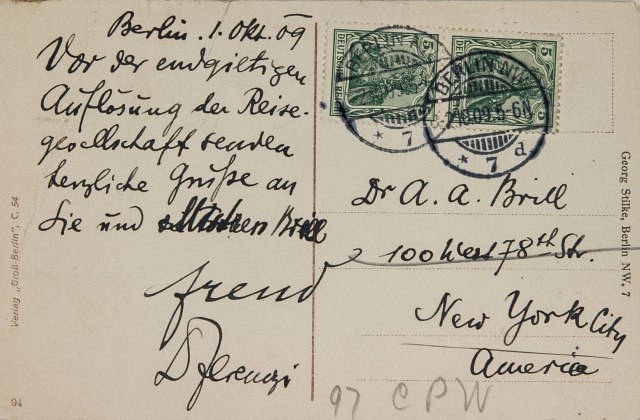 Berlin. 1. Okt. 09
Vor der endgiltigen
Auflösung der Reise-
gesellschaft senden
herzliche Grüße an
Sie und Brill
Freud
D Ferenczi
DEUTSCHES REICH
5
5
5
BERLIN N.W.
2.10.09.5-6N
* 7 d
* 7
Dr A. A. Brill
100 West 78th Str.
New York City
America
97 C P W
Georg Stilke, Berlin NW. 7
Verlag „Groß-Berlin", C. 54
94